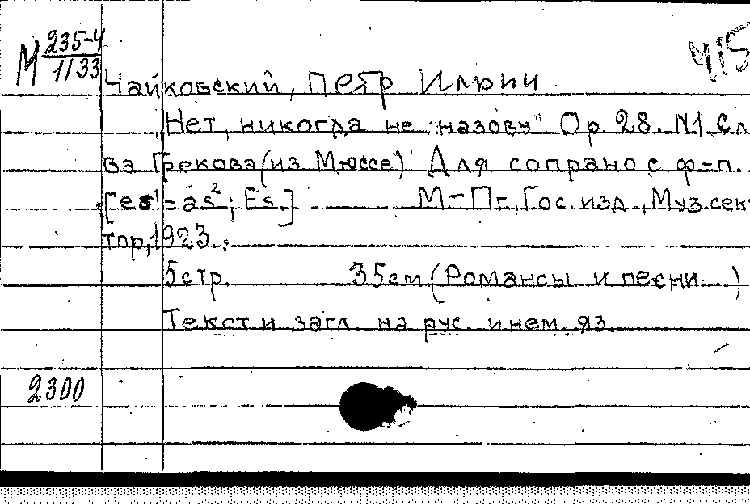 М 235-4
1/33
415
Чайковский, Петр Ильич
"Нет, никогда не назову" Ор. 28. N1. Сл
ва Грекова (из Мюссе) Для сопрано с ф-п.
[es¹-as²; Es.] М-Пг, Гос. изд., Муз. сек
тор, 1923.
5 стр. 35 см (Романсы и песни )
Текст и загл. на рус. и нем. яз.
2300